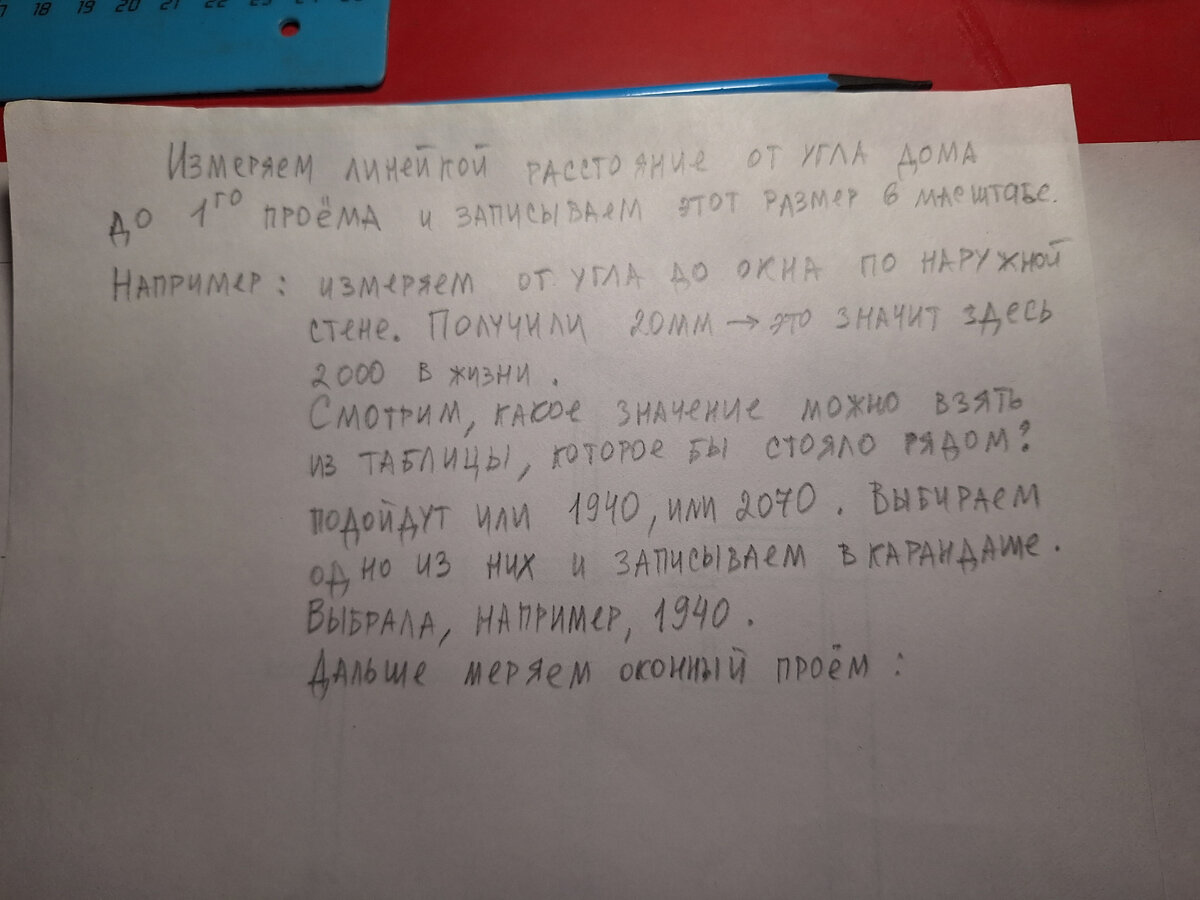 17 18 19 20 21 22 23 24
Измеряем линейкой расстояние от угла дома
до 1го проёма и записываем этот размер в масштабе.
Например: измеряем от угла до окна по наружной
стене. Получили 20мм → это значит здесь
2000 в жизни.
Смотрим, какое значение можно взять
из таблицы, которое бы стояло рядом?
подойдут или 1940, или 2070. Выбираем
одно из них и записываем в карандаше.
Выбрала, например, 1940.
Дальше меряем оконный проём: